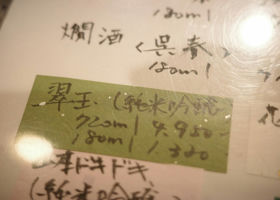 180ml
燗酒(呉春)
180ml
翠玉(純米吟醸
720ml 4.950
180ml 1.320
山本ドキドキ
(純米吟醸
花